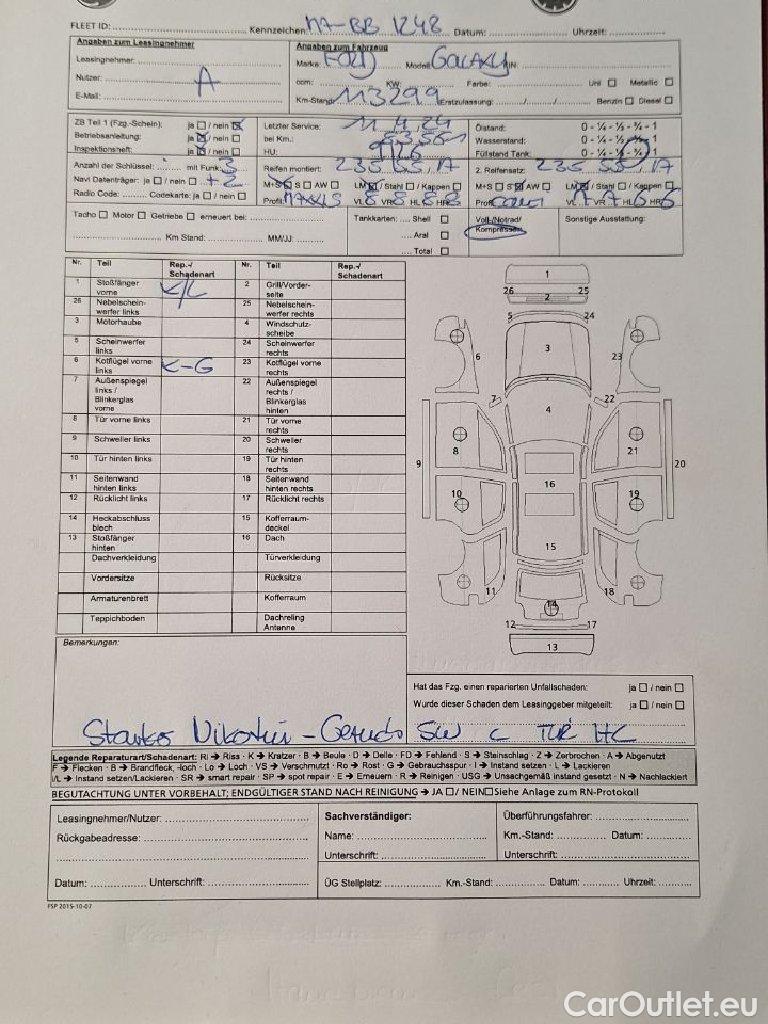 FLEET ID: Kennzeichen: MA-BB 1248 Datum: Uhrzeit:
Angaben zum Leasingnehmer
Leasingnehmer:
Nutzer: A
E-Mail:
Angaben zum Fahrzeug
Marke: FORD Modell: GALAXY
ccm: KW: Farbe: Uni Metallic
Km-Stand: 113299 Erstzulassung: / / Benzin Diesel
ZB Teil 1 (Fzg.-Schein): ja / nein
Betriebsanleitung: ja / nein
Inspektionsheft: ja / nein
Letzter Service: 11.4.24
bei Km.:
HU:
Ölstand: 0 - ¼ - ½ - ¾ - 1
Wasserstand: 0 - ¼ - ½ - ¾ - 1
Füllstand Tank: 0 - ¼ - ½ - ¾ - 1
Anzahl der Schlüssel: mit Funk: 3
Navi Datenträger: ja / nein + 2
Radio Code: Codekarte: ja / nein
Reifen montiert: 235 55, 17
M+S S AW LM / Stahl / Kappen
Profil: MAXXIS VL 8 VR 8 HL 8 HR 8
2. Reifensatz: 235 55, 17
M+S S AW LM / Stahl / Kappen
Tacho Motor Getriebe erneuert bei:
Km Stand: MM/JJ:
Tankkarten: Shell
Aral
Total
Voll-/Notrad/
Kompressor
Sonstige Ausstattung:
Nr. Teil Rep.-/ Schadenart Nr. Teil Rep.-/ Schadenart
1 Stoßfänger vorne K/L 2 Grill/Vorder-seite
26 Nebelschein-werfer links 25 Nebelschein-werfer rechts
3 Motorhaube 4 Windschutz-scheibe
5 Scheinwerfer links 24 Scheinwerfer rechts
6 Kotflügel vorne links K-G 23 Kotflügel vorne rechts
7 Außenspiegel links / Blinkerglas vorne 22 Außenspiegel rechts / Blinkerglas hinten
8 Tür vorne links 21 Tür vorne rechts
9 Schweller links 20 Schweller rechts
10 Tür hinten links 19 Tür hinten rechts
11 Seitenwand hinten links 18 Seitenwand hinten rechts
12 Rücklicht links 17 Rücklicht rechts
14 Heckabschluss blech 15 Kofferraum-deckel
13 Stoßfänger hinten 16 Dach
Dachverkleidung Türverkleidung
Vordersitze Rücksitze
Armaturenbrett Kofferraum
Teppichboden Dachreling Antenne
1
26 2 25
5 24
6 3 23
7 22
4
8 21
9 20
16
10 19
15
11 18
14
12 17
13
Bemerkungen:
Starker Nikotin - Geruch SW
Hat das Fzg. einen reparierten Unfallschaden: ja / nein
Wurde dieser Schaden dem Leasinggeber mitgeteilt: ja / nein
Legende Reparaturart/Schadenart: Ri → Riss · K → Kratzer · B → Beule · D → Delle · FD → Fehlend · S → Steinschlag · Z → Zerbrochen · A → Abgenutzt
F → Flecken · B → Brandfleck, -loch · Lo → Loch · VS → Verschmutzt · Ro → Rost · G → Gebrauchsspur · I → Instand setzen · L → Lackieren
I/L → Instand setzen/Lackieren · SR → smart repair · SP → spot repair · E → Erneuern · R → Reinigen · USG → Unsachgemäß instand gesetzt · N → Nachlackiert
BEGUTACHTUNG UNTER VORBEHALT; ENDGÜLTIGER STAND NACH REINIGUNG → JA / NEIN Siehe Anlage zum RN-Protokoll
Leasingnehmer/Nutzer:
Rückgabeadresse:
Datum: Unterschrift:
Sachverständiger:
Name:
Unterschrift:
Überführungsfahrer:
Km.-Stand: Datum:
Unterschrift:
ÜG Stellplatz: Km.-Stand: Datum: Uhrzeit:
FSP 2015-10-07
CarOutlet.eu